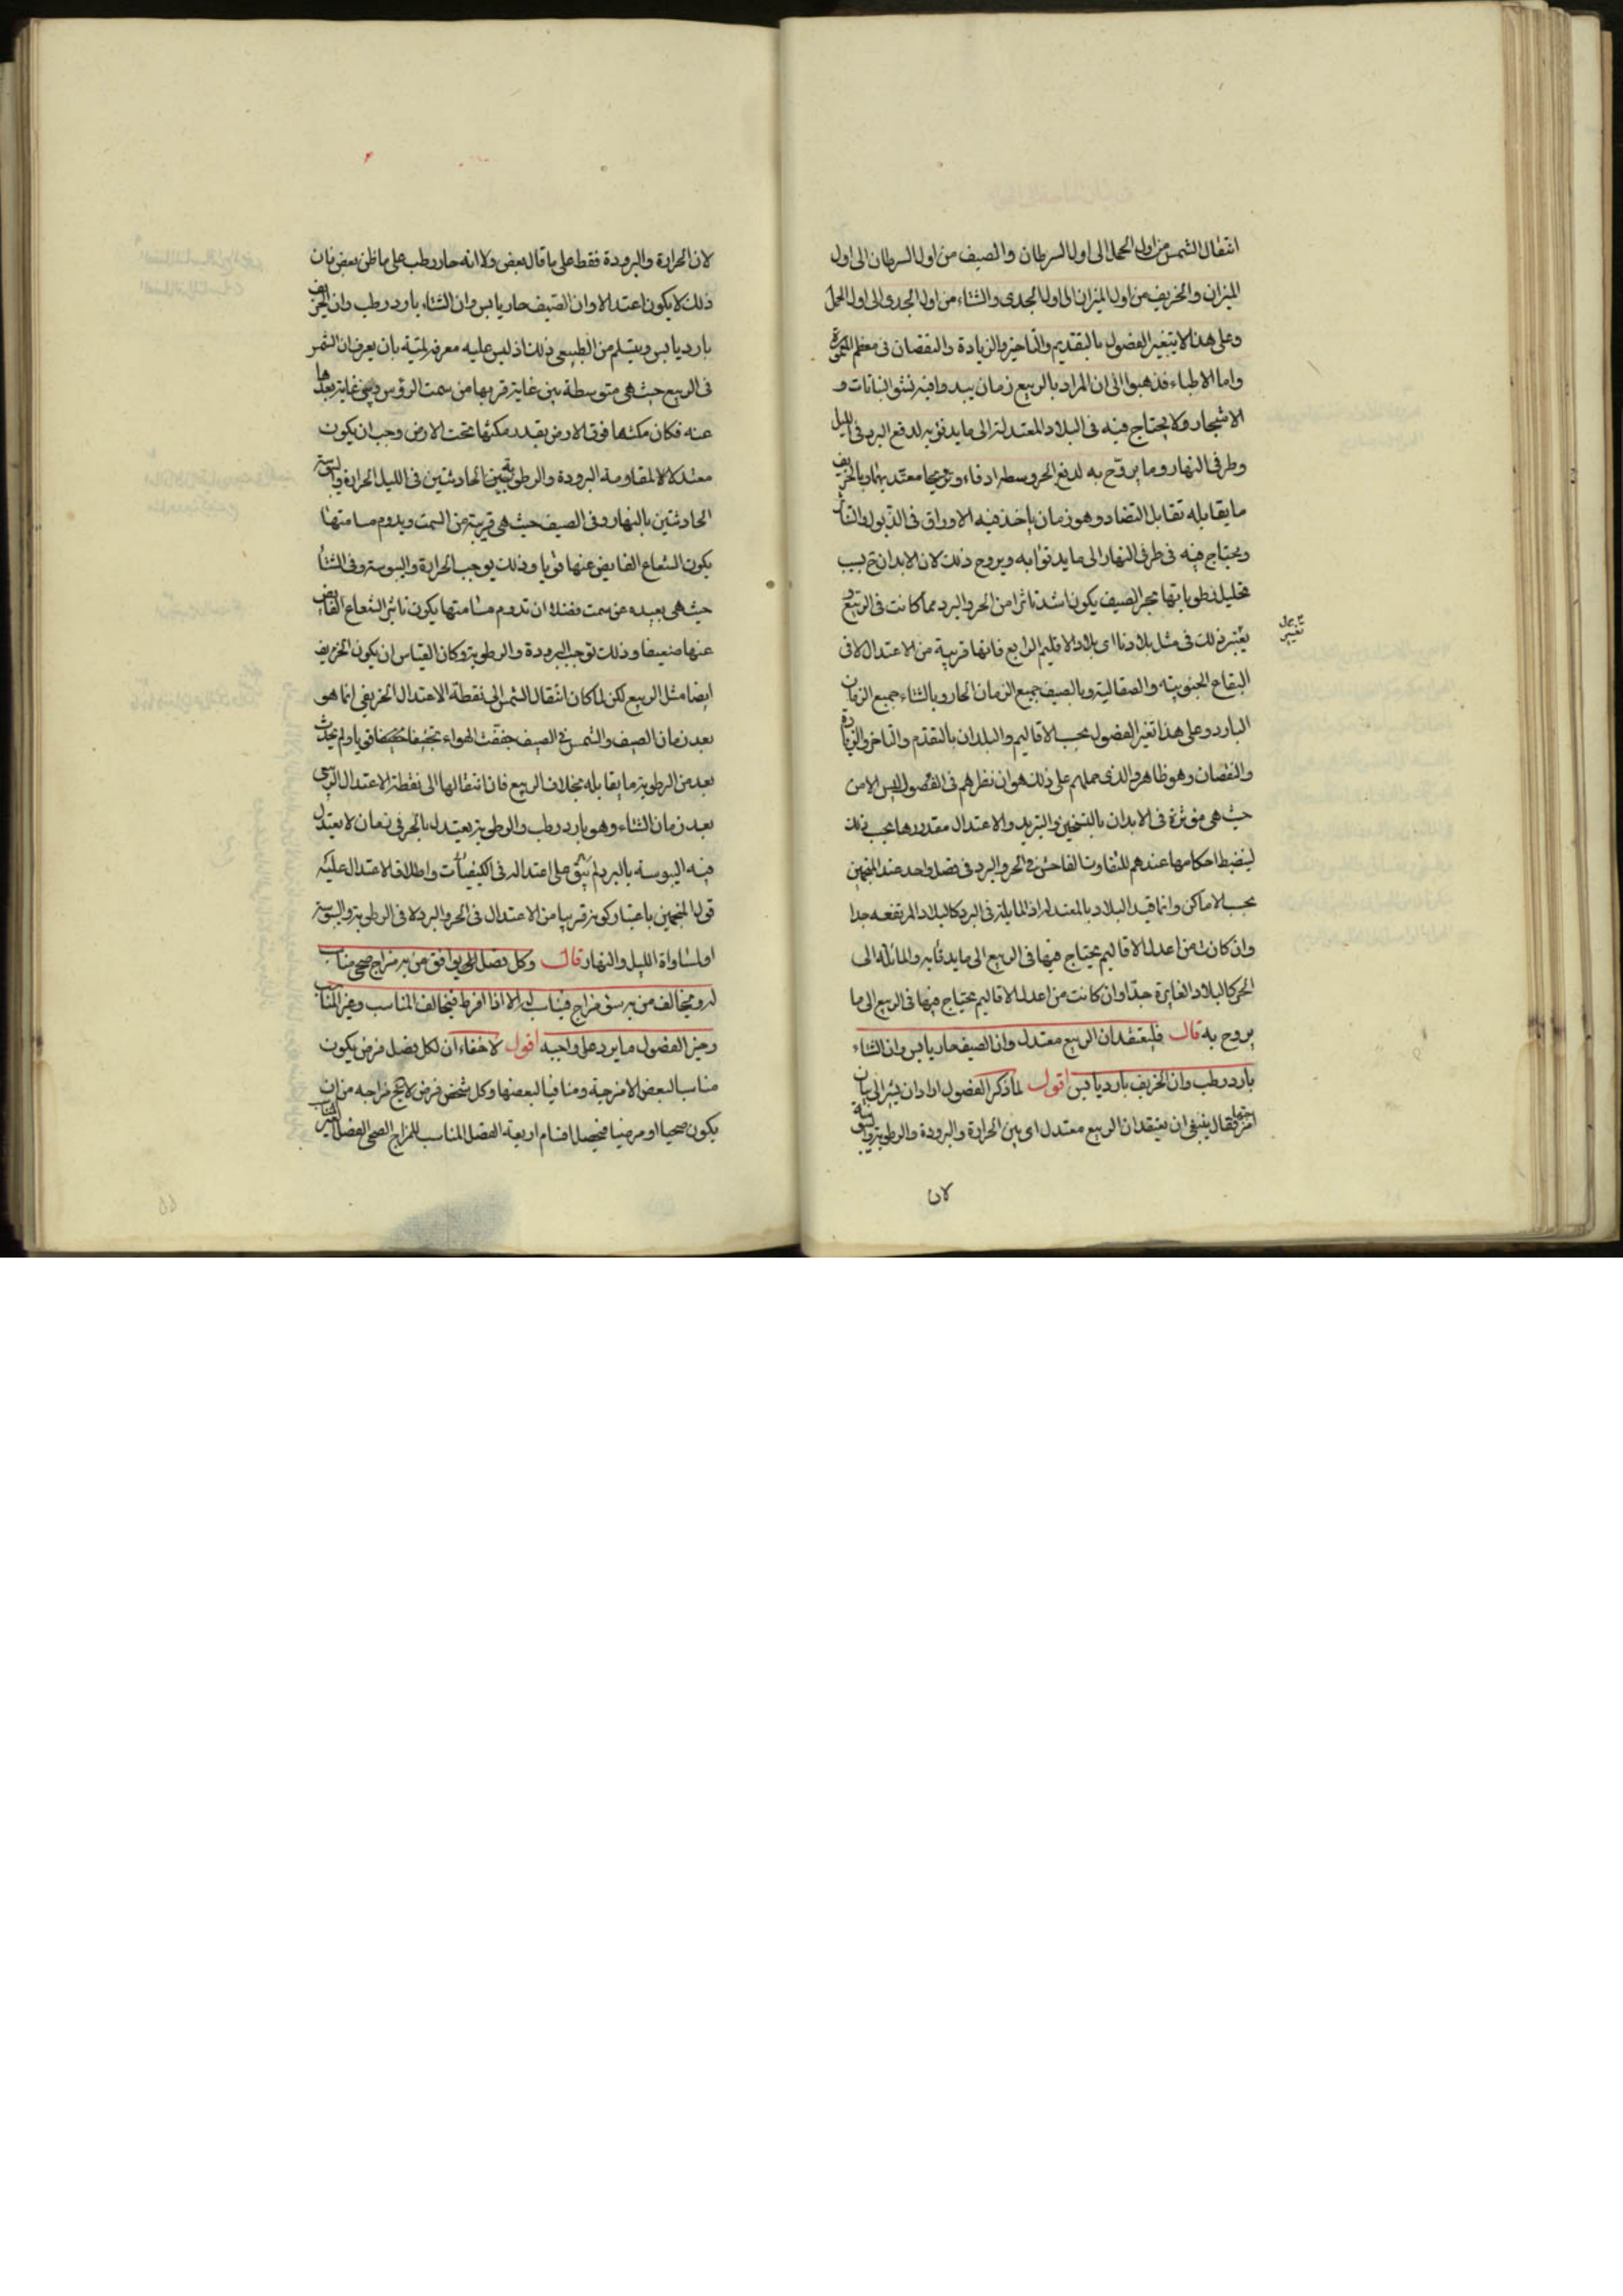 انتقال الشمس من اول الحمل الى اول السرطان والصيف من اول السرطان الى اول
الميزان والخريف من اول الميزان الى اول الجدى والشتاء من اول الجدى الى اول الحمل
وعلى هذا لا يتغير الفصول بالتقديم والتاخير والزيادة والنقصان فى معظم المعمورة
واما الاطباء فذهبوا الى ان المراد بالربيع زمان يبدو فيه نشو النباتات و
الاشجار ولا يحتاج فيه فى البلاد المعتدلة الى ما يدفؤ به لدفع البرد فى الليل
وطرفى النهار وما يروح به لدفع الحر وسطه ادفاء وترويحا معتدا بهما وبالخريف
ما يقابله تقابل التضاد وهو زمان ياخذ فيه الاوراق فى الذبول والتناثر
ويحتاج فيه فى طرفى النهار الى ما يدفؤا به ويروح ذلك لان الابدان ح بسبب
تحليل رطوباتها بحر الصيف يكون اشد تاثرا من الحر والبرد مما كانت فى الربيع و
يعتبر ذلك فى مثل بلادنا اى بلاد الاقليم الرابع فانها قريبة من الاعتدال لا فى
البقاع الجنوبية والصقالبة وبالصيف جميع الزمان الحار وبالشتاء جميع الزمان
البارد وعلى هذا تغير الفصول بحسب الاقاليم والبلدان بالتقدم والتاخر والزيادة
والنقصان وهو ظاهر والذى حملهم على ذلك هو ان نظرهم فى الفصول ليس الا من
حيث هى مؤثرة فى الابدان بالتسخين والتبريد والاعتدال فقدروها بحسب ذلك
لينضبط احكامها عندهم للتفاوت الفاحش فى الحر والبرد فى فصل واحد عند المنجمين
بحسب الاماكن وانما قيد البلاد بالمعتدلة اذ المايلة فى البرد كالبلاد المرتفعه جدا
وان كانت من اعدل الاقاليم يحتاج فيها فى الربيع الى ما يدفأ به والمائلة الى
الحر كالبلاد الغايرة جدا وان كانت من اعدل الاقاليم يحتاج فيها فى الربيع الى ما
يروح به قال فليعتقد ان الربيع معتدل وان الصيف حار يابس وان الشتاء
بارد رطب وان الخريف بارد يابس اقول لما ذكر الفصول اراد ان يشير الى بيان
امزجتها فقال ينبغى ان يعتقد ان الربيع معتدل اى بين الحرارة والبرودة والرطوبة واليبوسة
لان
لان الحرارة والبرودة فقط على ما قال بعض ولا انه حار رطب على ما ظن بعض فان
ذلك لا يكون اعتدالا وان الصيف حار يابس وان الشتاء بارد رطب وان الخريف
بارد يابس ويتسلم من الطبيعى ذلك اذ ليس عليه معرفة لميته بان يعرف ان الشمس
فى الربيع حيث هى متوسطة بين غاية قربها من سمت الرؤس وبين غاية بعدها
عنه فكان مكثها فوق الارض بقدر مكثها تحت الارض وجب ان يكون
معتدلا لمقاومة البرودة والرطوبة الحادثتين فى الليل الحرارة واليبوسة
الحادثتين بالنهار وفى الصيف حيث هى قريبة من السمت ويدوم مسامتها
يكون الشعاع الفايض عنها قويا وذلك يوجب الحرارة واليبوسة وفى الشتا
حيث هى بعيده عن سمت فضلا ان تدوم مسامتها يكون تاثير الشعاع الفايض
عنها ضعيفا وذلك يوجب البرودة والرطوبة وكان القياس ان يكون الخريف
ايضا مثل الربيع لكن لما كان انتقال الشمس الى نقطة الاعتدال الخريفى انما هو
بعد زمان الصيف والشمس فى الصيف جففت الهواء تجفيفا قويا ولم يحدث
بعد من الرطوبة ما يقابله بخلاف الربيع فان انتقالها الى نقطة الاعتدال الربيعى
بعد زمان الشتاء وهو بارد رطب والرطوبة يعتدل بالحر فى زمان لا يعتدل
فيه اليبوسة بالبرد لم يبق على اعتداله فى الكيفيات واطلاق الاعتدال عليه
قول المنجمين باعتبار كونه قريبا من الاعتدال فى الحر والبرد لا فى الرطوبة واليبوسة
او لمساواة الليل والنهار قال وكل فصل يوافق من به مزاج صحى مناسب
له ويخالف من به سوء مزاج مناسب له الا اذا افرط فيخالف المناسب وغير المناسب
وخير الفصول ما يرد على واجبه اقول لا خفاء ان لكل فصل فرض يكون
مناسبا لبعض الامزجة ومنافيا لبعضها وكل شخص فرض لا يخ مزاجه من ان
يكون صحيا او مرضيا فيحصل اقسام اربعة الفصل المناسب للمزاج الصحى الفصل الغير المناسب